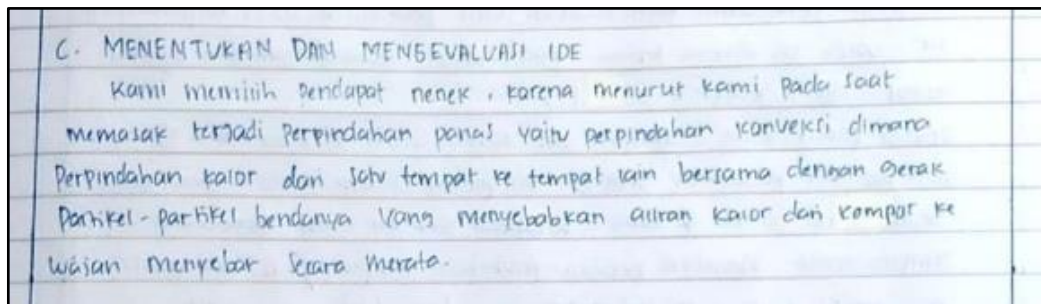 C. MENENTUKAN DAN MENGEVALUASI IDE
Kami memilih pendapat nenek, karena menurut kami pada saat
memasak terjadi perpindahan panas yaitu perpindahan konveksi dimana
Perpindahan kalor dari satu tempat ke tempat lain bersama dengan gerak
Partikel-partikel bendanya yang menyebabkan aliran kalor dari kompor ke
wajan menyebar secara merata.